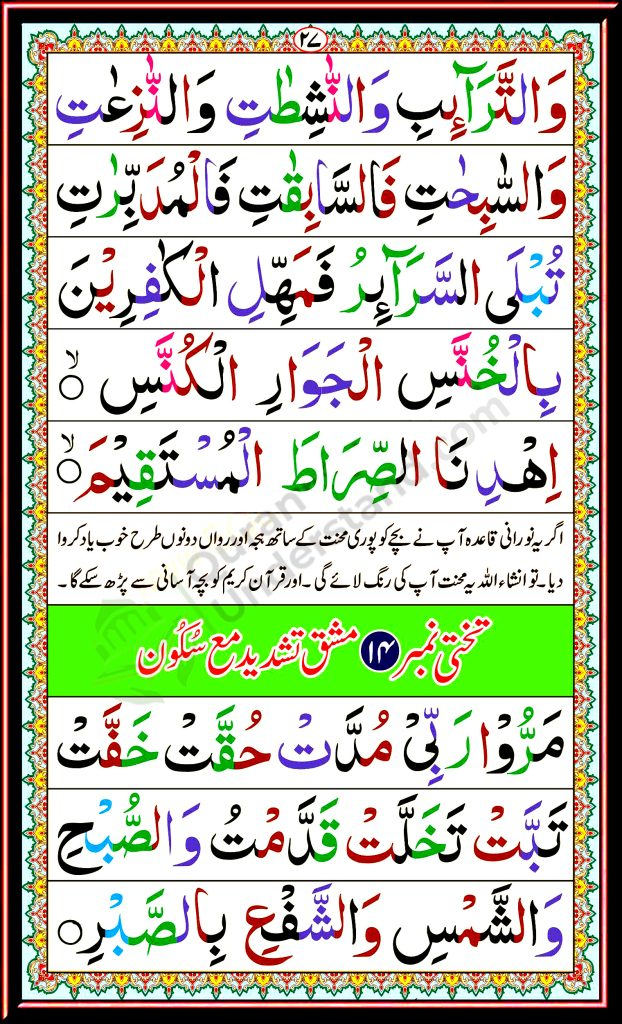 ۲۷
وَالتَّرَآئِبِ وَالنّٰشِطٰتِ وَالنّٰزِعٰتِ
وَالسّٰبِحٰتِ فَالسَّابِقٰتِ فَالْمُدَبِّرٰتِ
تُبْلَى السَّرَآئِرُ فَمَهِّلِ الْكٰفِرِيْنَ
بِالْخُنَّسِ الْجَوَارِ الْكُنَّسِ ۙ○
اِهْدِنَا الصِّرَاطَ الْمُسْتَقِيْمَ ۙ○
اگر یہ نورانی قاعدہ آپ نے بچے کو پوری محنت کے ساتھ ہجہ اور رواں دونوں طرح خوب یاد کروا
دیا۔ تو انشاء اللہ یہ محنت آپ کی رنگ لائے گی۔ اور قرآن کریم کو بچہ آسانی سے پڑھ سکے گا۔
تختی نمبر ۱۴ مشق تشدید مع سُکُون
مَرُّوْا رَبِّیْ مُدَّتْ حُقَّتْ خَفَّتْ
تَبَّتْ تَخَلَّتْ قَدَّمْتُ وَالصُّبْحِ
وَالشَّمْسِ وَالشَّفْعِ بِالصَّبْرِ○
Quran
Understand.com